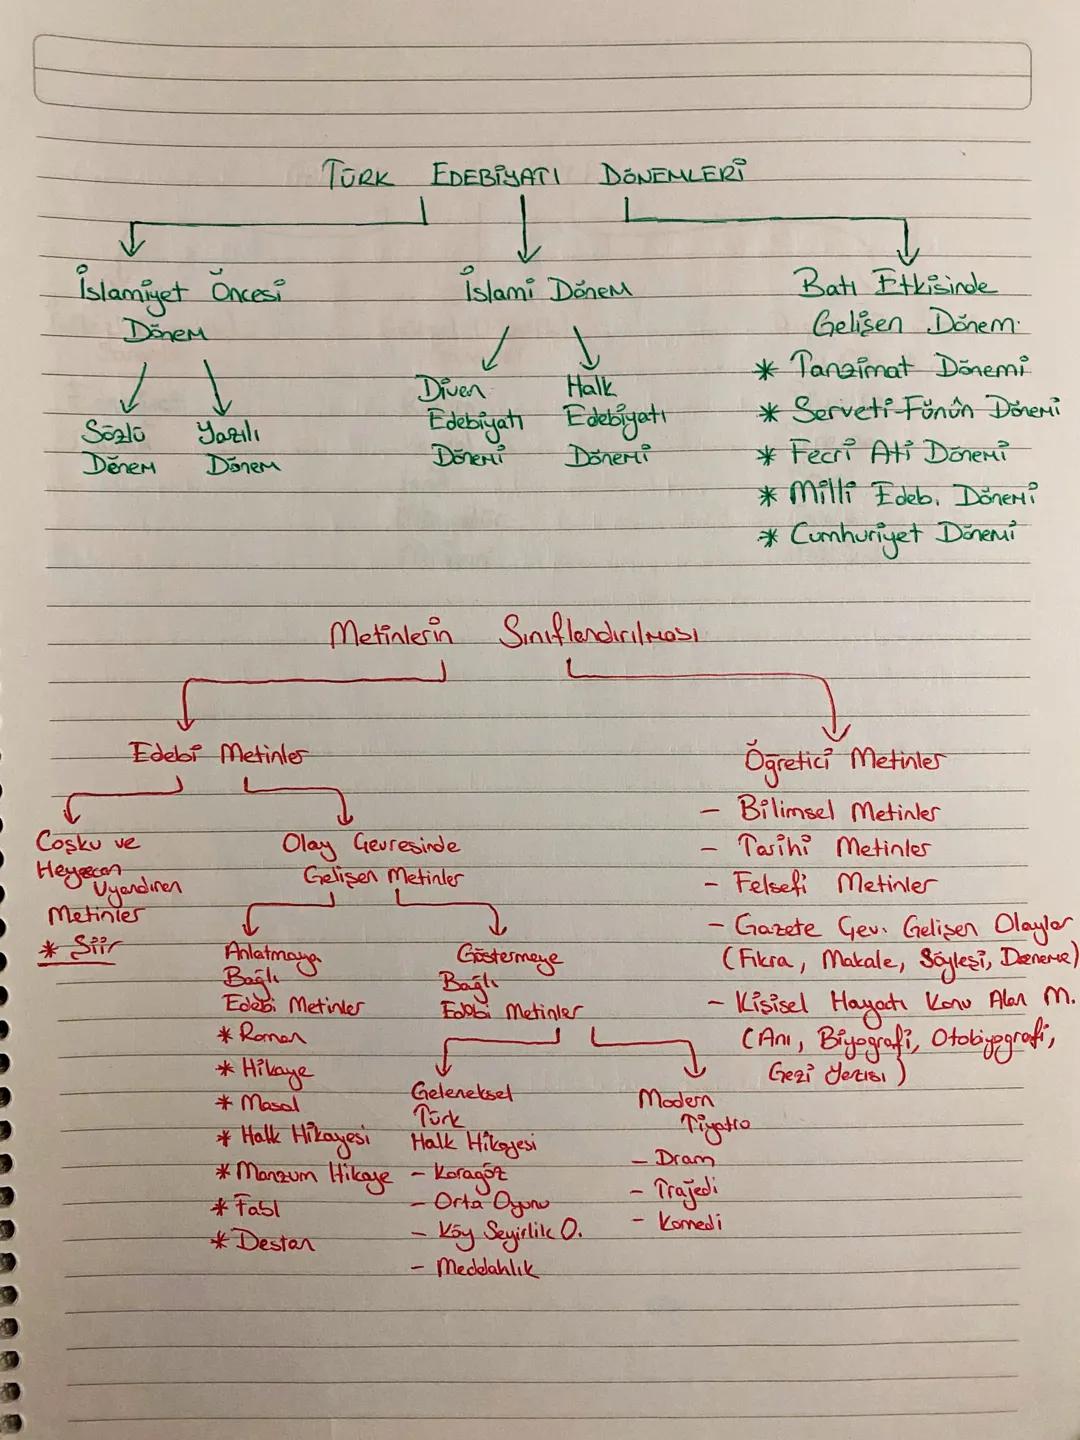 TÜRK EDEBİYATI DÖNEMLERİ
İslamiyet Öncesi
Dönem
Sözlü
Dönem
Yazılı
Dönem
İslami Dönem
Divan
Edebiyatı
Dönemi
Halk
Edebiyatı
Dönemi
Batı Etkisinde
Gelişen Dönem
* Tanzimat Dönemi
* Serveti-Fünûn Dönemi
* Fecri Ati Dönemi
* Milli Edeb. Dönemi
* Cumhuriyet Dönemi
Metinlerin Sınıflandırılması
Edebi Metinler
Coşku ve
Heyecan
Uyandıran
Metinler
* Şiir
Olay Çevresinde
Gelişen Metinler
Anlatmaya
Bağlı
Edebi Metinler
* Roman
* Hikaye
* Masal
* Halk Hikayesi
* Manzum Hikaye
* Fabl
* Destan
Göstermeye
Bağlı
Edebi Metinler
Geleneksel
Türk
Halk Hikayesi
- Karagöz
- Orta Oyunu
- Köy Seyirlik O.
- Meddahlık
Modern
Tiyatro
- Dram
- Trajedi
- Komedi
Öğretici Metinler
- Bilimsel Metinler
- Tarihi Metinler
- Felsefi Metinler
- Gazete Çev. Gelişen Olaylar
(Fıkra, Makale, Söyleşi, Deneme)
- Kişisel Hayatı Konu Alan M.
(Anı, Biyografi, Otobiyografi,
Gezi Yazısı)